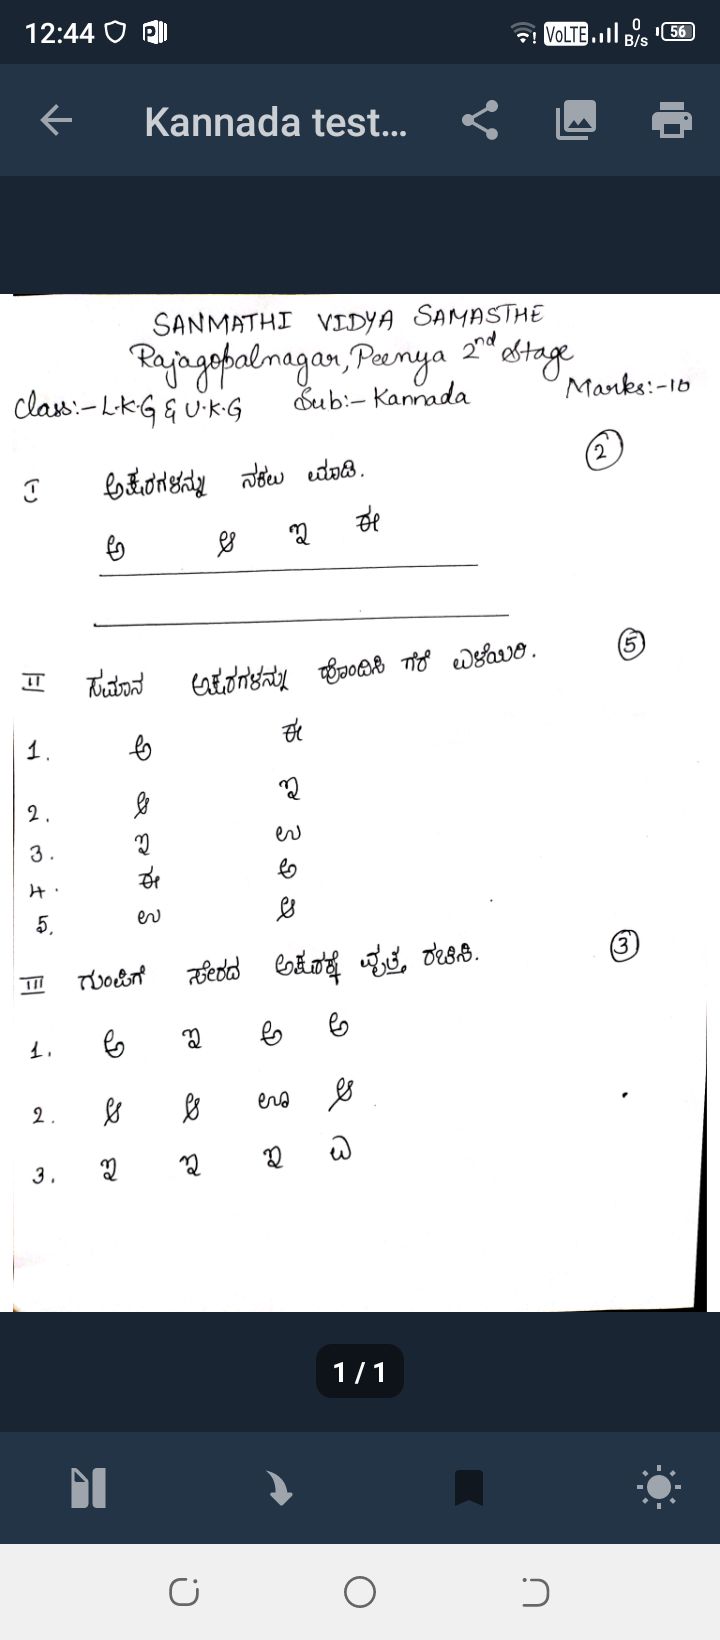 12:44 VoLTE 0 B/s 56
Kannada test...
SANMATHI VIDYA SAMASTHE
Rajagopalnagar, Peenya 2nd Stage
Class:- L.K.G & U.K.G Sub:- Kannada Marks:-10
I ಅಕ್ಷರಗಳನ್ನು ನಕಲು ಮಾಡಿ. 2
ಅ ಆ ಇ ಈ
II ಸಮಾನ ಅಕ್ಷರಗಳನ್ನು ಹೊಂದಿಸಿ ಗೆರೆ ಎಳೆಯಿರಿ. 5
1. ಅ ಈ
2. ಆ ಇ
3. ಇ ಉ
4. ಈ ಅ
5. ಉ ಆ
III ಗುಂಪಿಗೆ ಸೇರದ ಅಕ್ಷರಕ್ಕೆ ವೃತ್ತ ರಚಿಸಿ. 3
1. ಅ ಇ ಅ ಅ
2. ಆ ಆ ಊ ಆ
3. ಇ ಇ ಇ ಎ
1 / 1